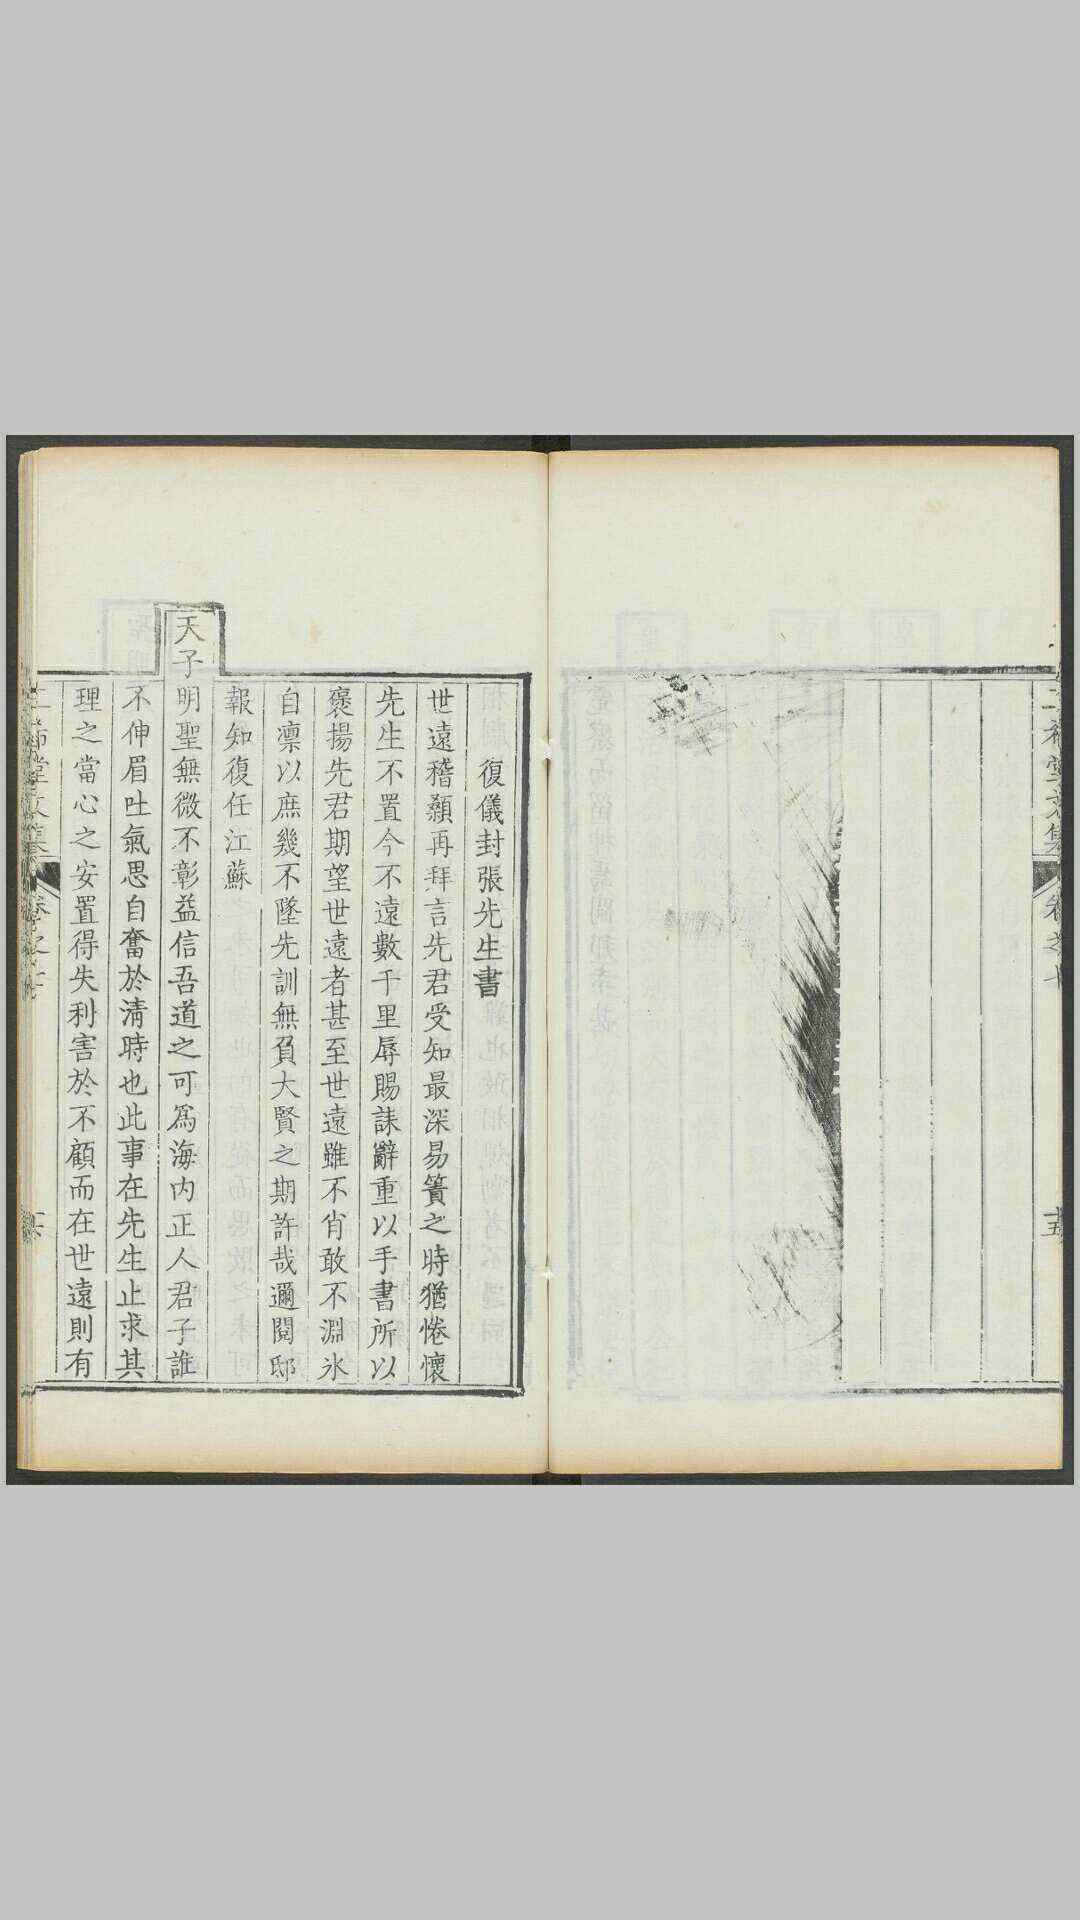 二希堂文集
卷之十
十五
復儀封張先生書
世遠稽顙再拜言先君受知最深易簀之時猶惓懷
先生不置今不遠數千里辱賜誄辭重以手書所以
褒揚先君期望世遠者甚至世遠雖不肖敢不淵氷
自凛以庶幾不墜先訓無負大賢之期許哉邇閱邸
報知復任江蘇
天子明聖無微不彰益信吾道之可爲海内正人君子誰
不伸眉吐氣思自奮於淸時也此事在先生止求其
理之當心之安置得失利害於不顧而在世遠則有
二希堂文集